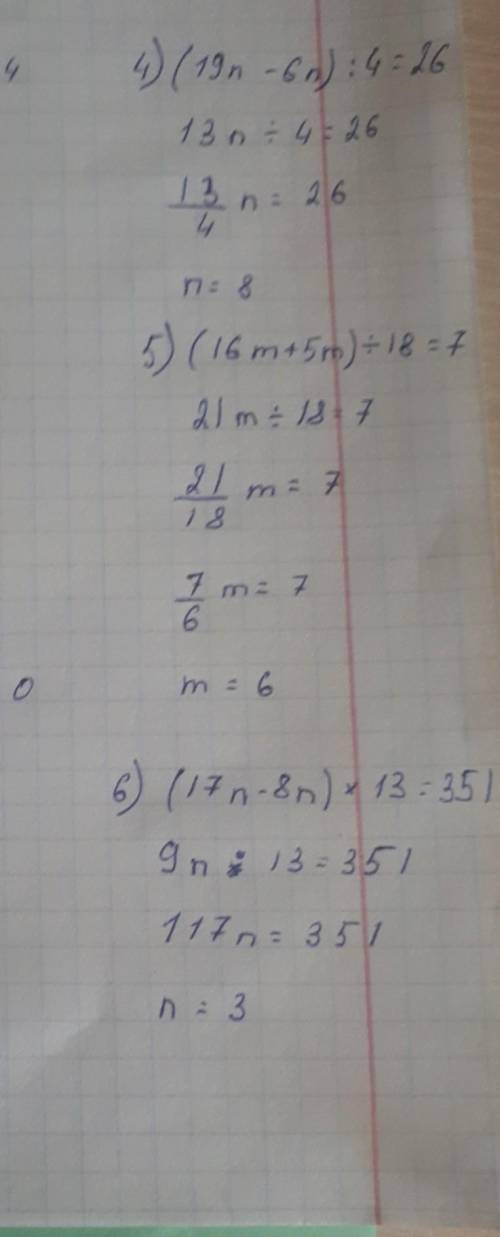 4
4) (19n - 6n) : 4 = 26
13n ÷ 4 = 26
13/4 n = 26
n = 8
5) (16m + 5m) ÷ 18 = 7
21m ÷ 18 = 7
21/18 m = 7
7/6 m = 7
0
m = 6
6) (17n - 8n) × 13 = 351
9n · 13 = 351
117n = 351
n = 3